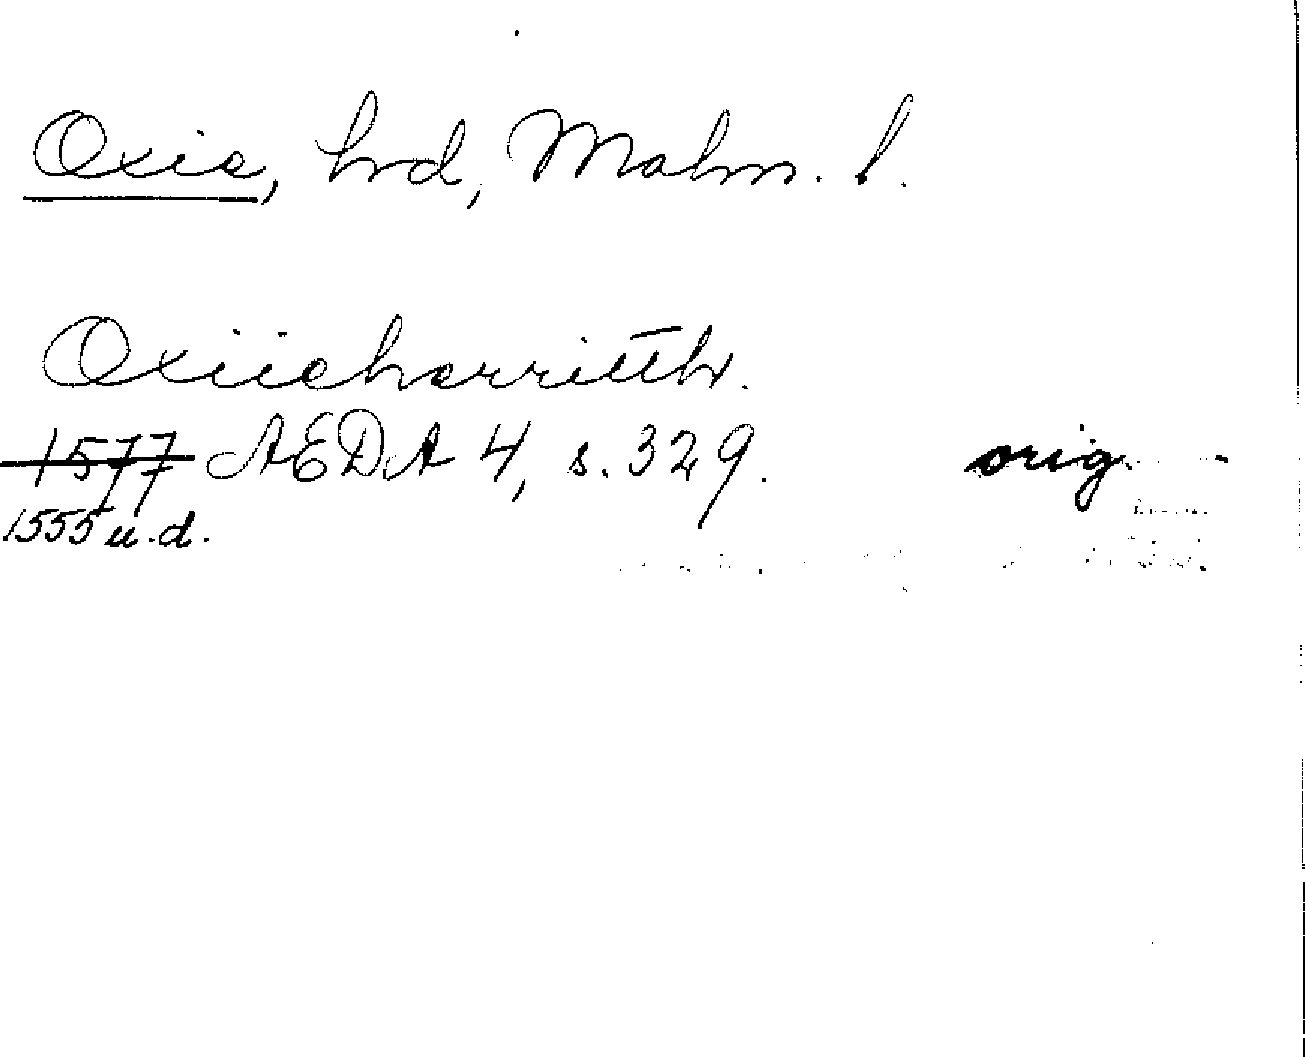 Oxie, hrd, Malm. l.
Oxiieherritth.
1577 AEDA 4, s. 329. orig.
1555 u.d.